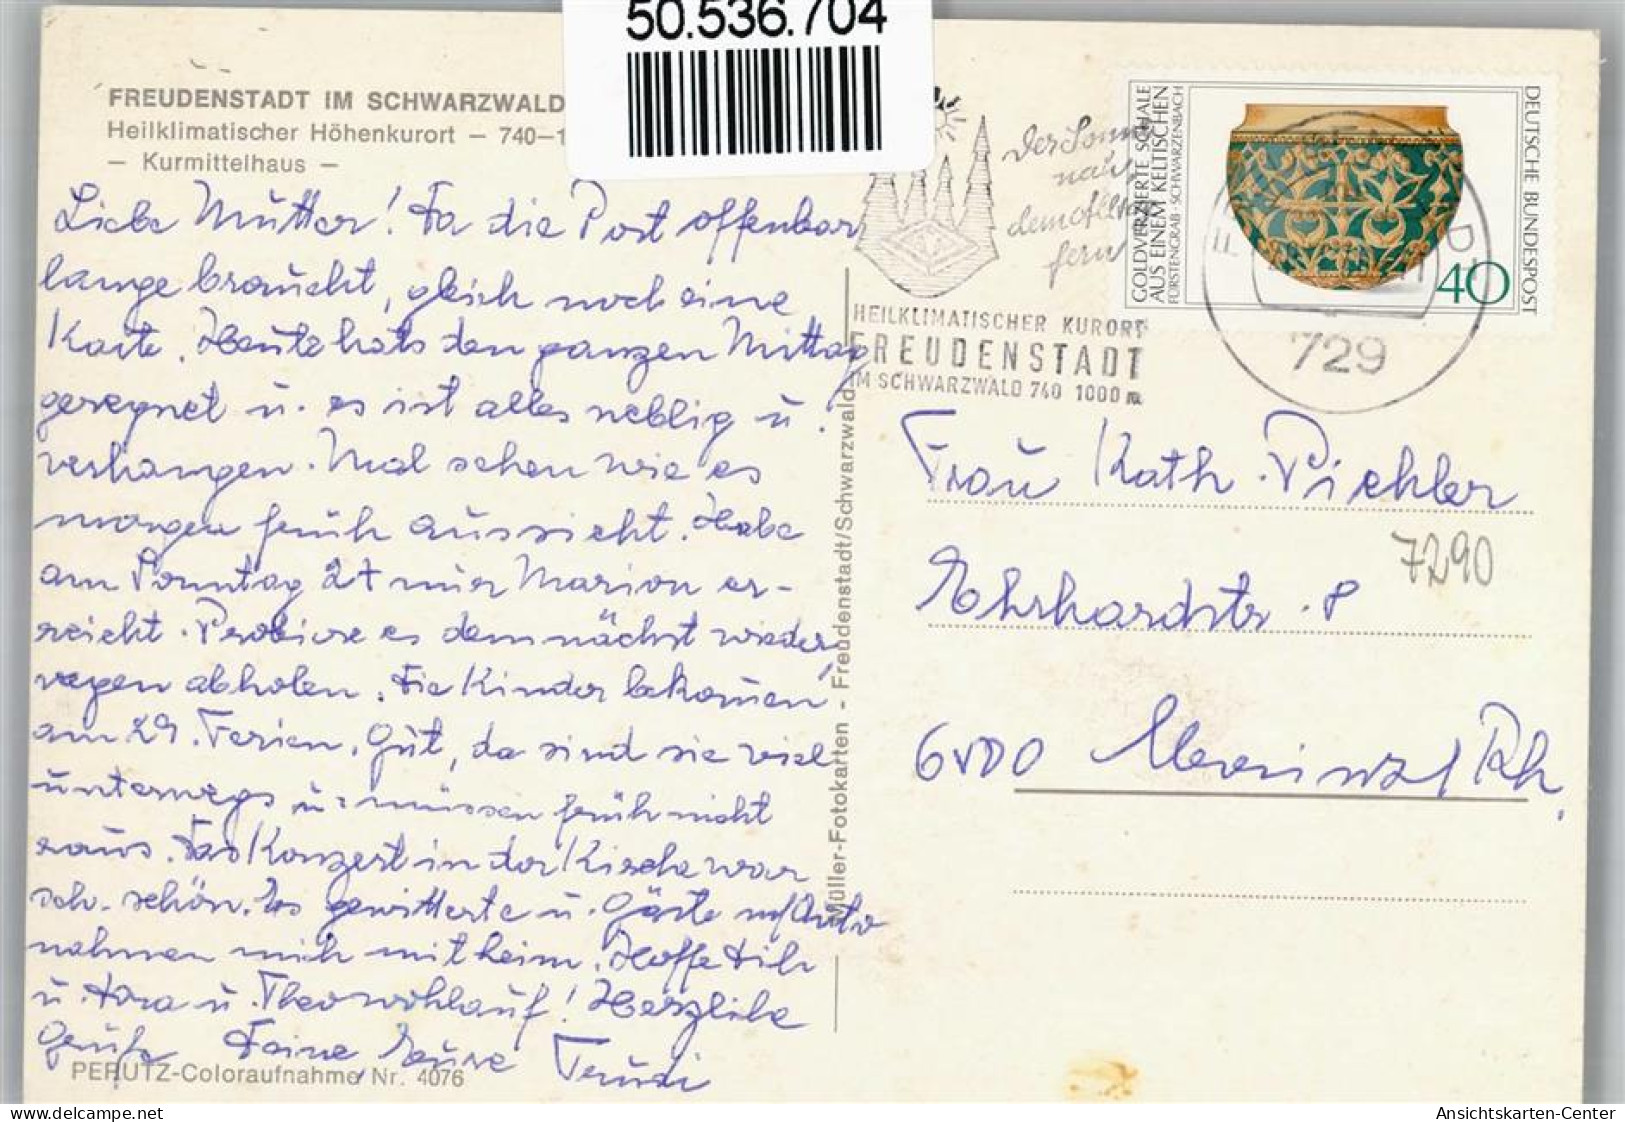 50.536.704
FREUDENSTADT IM SCHWARZWALD
Heilklimatischer Höhenkurort – 740–1
– Kurmittelhaus –
Liebe Mutter! Da die Post offenbar
lange braucht, gleich noch eine
Karte. Heute hats den ganzen Mittag
geregnet u. es ist alles neblig u.
verhangen. Mal sehen wie es
morgen früh aussieht. Habe
am Sonntag nur Marion er-
reicht. Probiere es demnächst wieder,
wegen abholen. Die Kinder bekommen
am 29. Ferien. Gut, da sind sie viel
unterwegs u. müssen früh nicht
raus. Das Konzert in der Kirche war
sch. schön. Es gewitterte u. Gäste m/Auto
nahmen mich mit heim. Hoffe Dich
u. Dra u. Theo wohlauf! Herzliche
Grüße Deine, Eure Trudi
PERUTZ-Coloraufnahme, Nr. 4076
Müller-Fotokarten - Freudenstadt/Schwarzwald
Der Sonne
nah
dem Alltag
fern
HEILKLIMATISCHER KURORT
FREUDENSTADT
IM SCHWARZWALD 740 1000 m
GOLDVERZIERTE SCHALE
AUS EINEM KELTISCHEN
FÜRSTENGRAB · SCHWARZENBACH
DEUTSCHE BUNDESPOST
40
729
Frau Kath. Pichler
7290
Ehrhardstr. 8
6500 Mainz/Rh.
Ansichtskarten-Center
www.delcampe.net